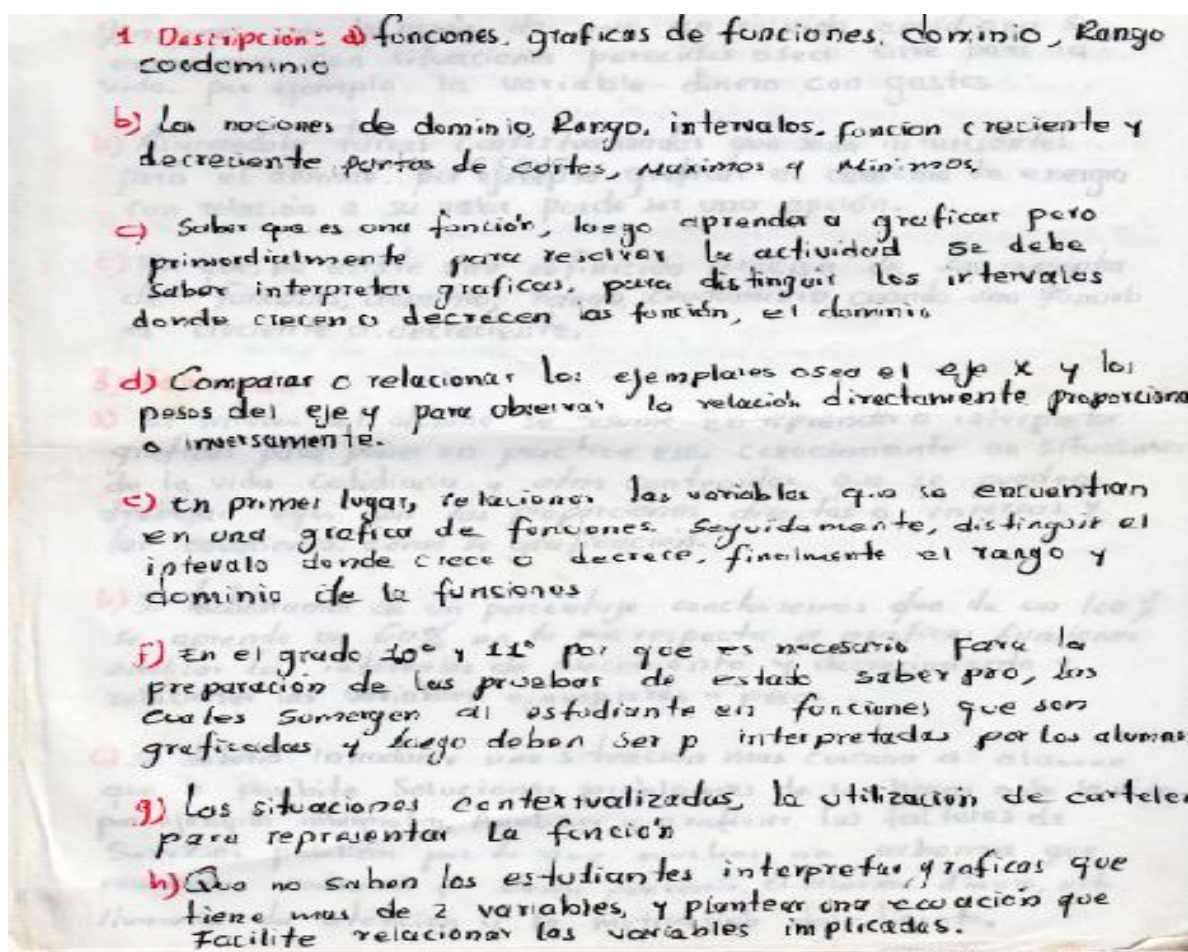 1 Descripción: a) funciones, graficas de funciones, dominio, Rango
coodominio
b) Las nociones de dominio, Rango, intervalos, funcion creciente y
decreciente, puntos de cortes, maximos y Minimos.
c) Saber que es una función, luego aprender a graficar pero
primordialmente para resolver la actividad se debe
saber interpretar graficas, para distinguir los intervalos
donde crecen o decrecen las función, el dominio
d) Comparar o relacionar los ejemplares osea el eje x y los
pesos del eje y para observar la relación directamente proporciona
o inversamente.
e) En primer lugar, relacionar las variables que se encuentran
en una grafica de funciones. Seguidamente, distinguir el
intevalo donde crece o decrece, finalmente el rango y
dominio de la funciones
f) En el grado 10° y 11° por que es necesario Para la
preparación de las pruebas de estado saber pro, las
cuales sumergen al estudiante en funciones que son
graficadas y luego deben ser p interpretadas por los alumnos
g) Las situaciones contextualizadas, la utilización de carteler
para representar La función
h) Que no saben los estudiantes interpretar graficas que
tiene mas de 2 variables, y plantear una ecuación que
Facilite relacionar las variables implicadas.